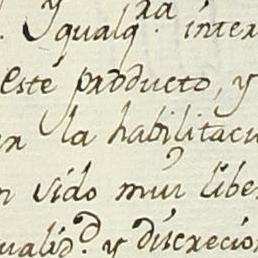 y qualq.ra inter
este producto, y
en la habilitaci
n sido muy liber
ualid.d y discrecio